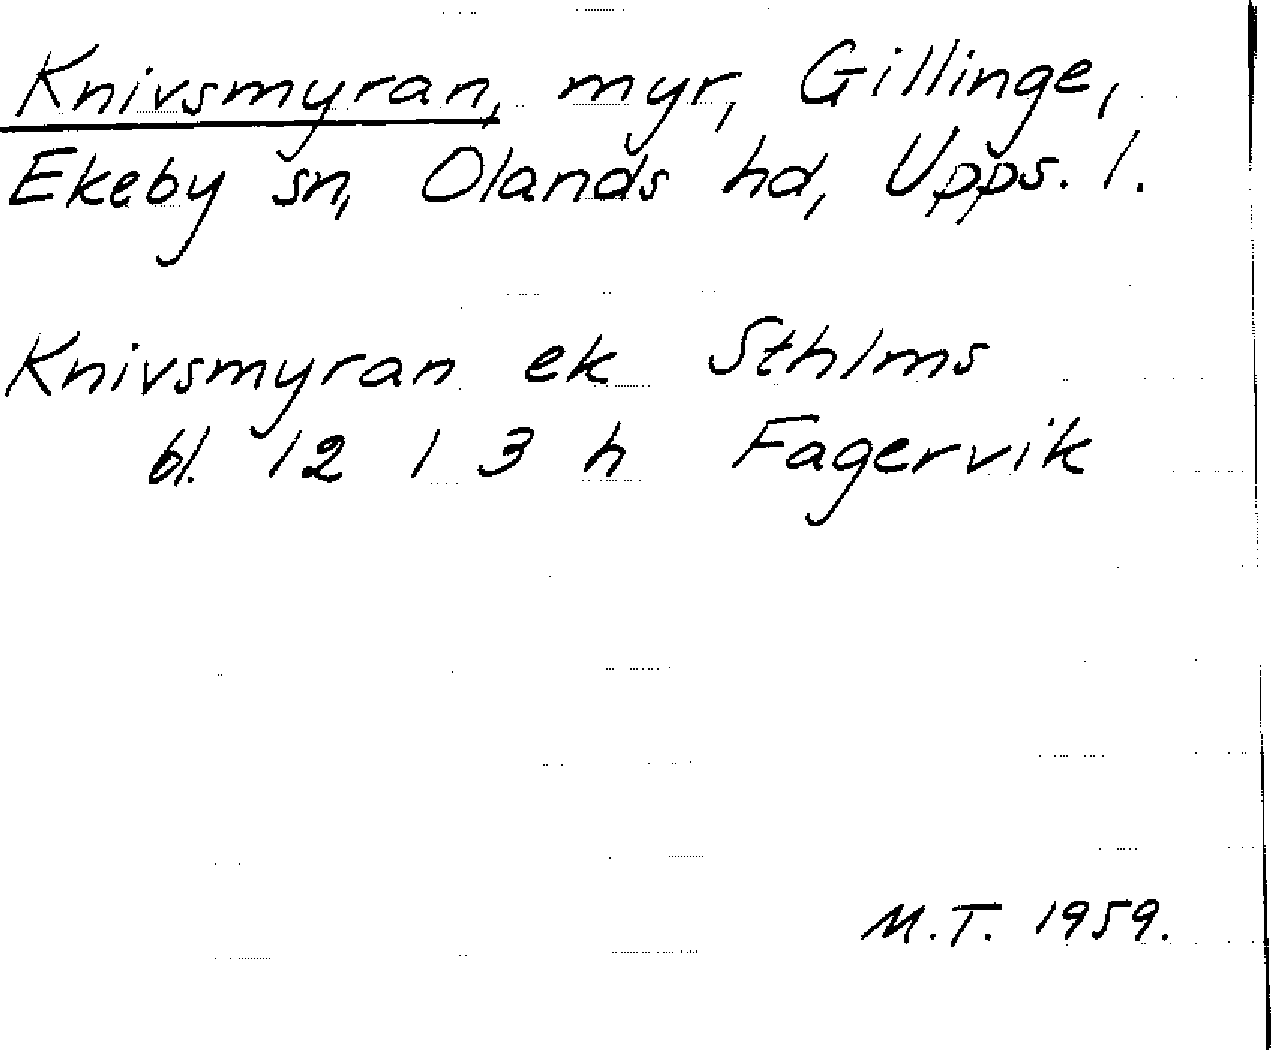 Knivsmyran, myr, Gillinge,
Ekeby sn, Olands hd, Upps. l.
Knivsmyran ek Sthlms
bl. 12 1 3 h Fagervik
M.T. 1959.